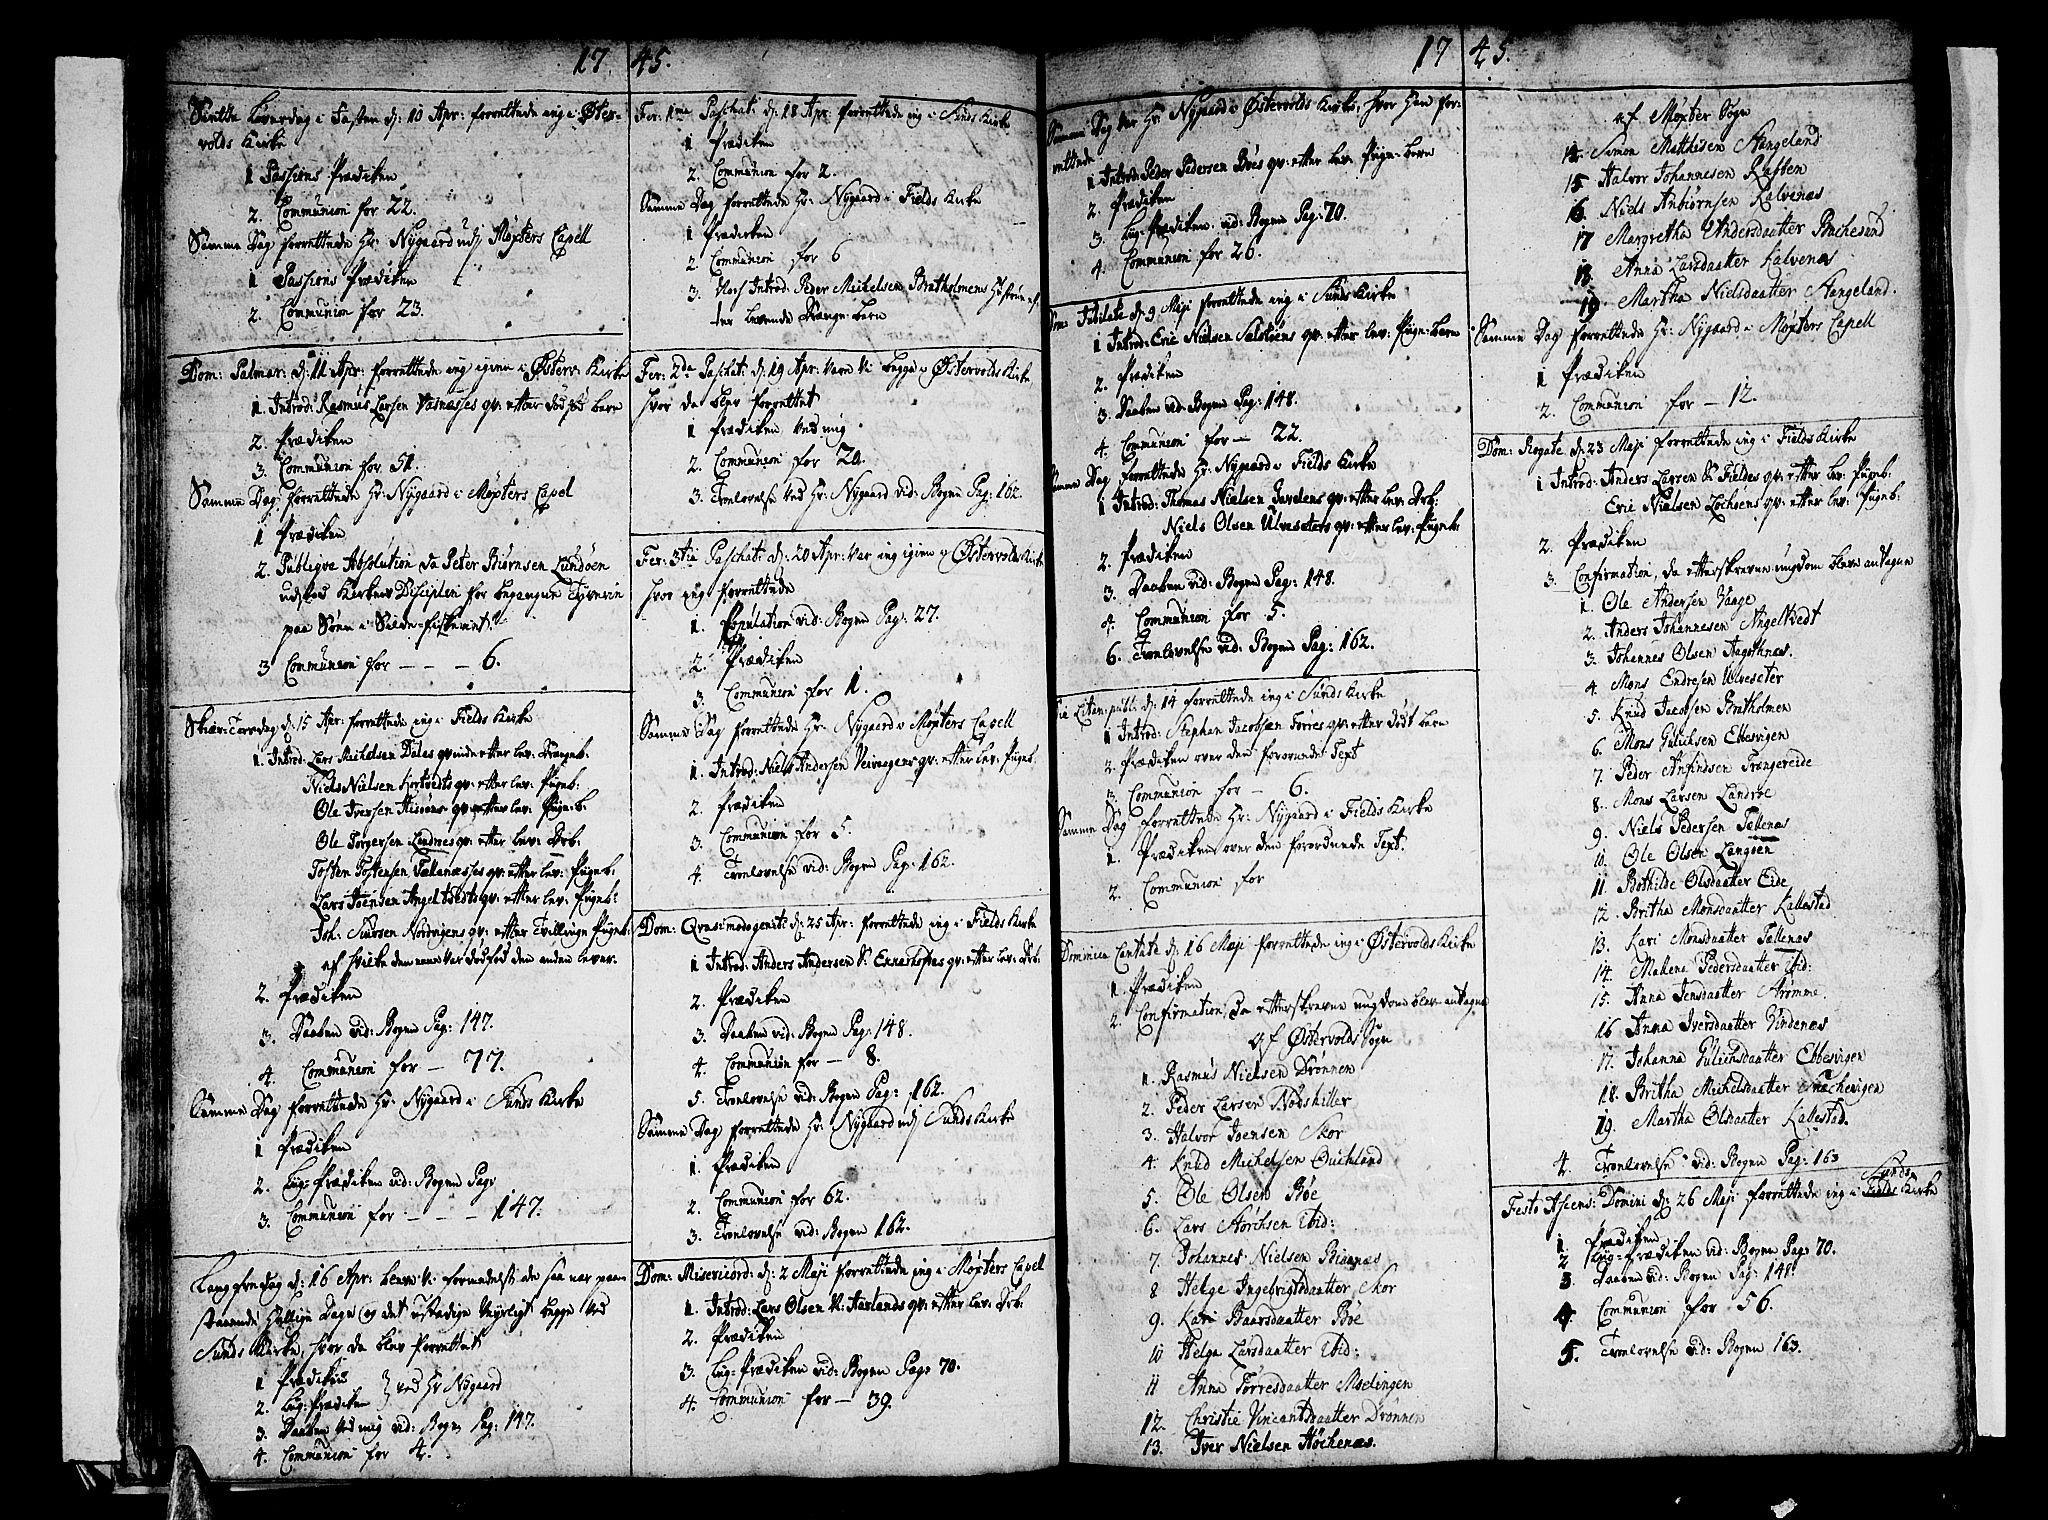 17 45.
Siette Løverdag i Fasten d: 10 Apr: forrettede ieg i Øster-
volds Kirke
1 Passions Prædiken
2. Communion for 22.
Samme Dag forrettede Hr: Nygaard udj Møxters Capell
1 Passions Prædiken
2. Communion for 23.
Dom: Palmar: d: 11 Apr: forrettede ieg igien i Østerv: Kirke
1. Introd: Rasmus Larsen Vasnæsses qv: efter dødfød barn
2. Prædiken
3. Communion for 51.
Samme Dag forrettede Hr: Nygaard i Møxters Capel
1 Prædiken
2. Publiqve Absolution da Peter Biørnsen Lundøen
udstod Kirkens Disciplin for begangne Tyverie
paa Søen i Silde-fiskeriet.
3 Communion for - - - 6.
Skiær-Torsdag d: 15 Apr: forrettede ieg i Fields Kirke
1. Introd: Lars Michelsen Dales qvinde efter lev: Drengeb:
Niels Nielsen Hortvedts qv: efter lev: Pigeb:
Ole Iversen Hisøens qv: efter lev: Pigeb:
Ole Torgersen Lundnes qv: efter lev: Drb:
Tosten Tostensen Tællenæsses qv: efter lev: Pigeb:
Lars Joensen Angeltvedts qv: efter lev: Pigeb:
Joh: Siursen Nordvigens qv: efter Tvillinge Pigeb:
af hvilke den eene var dødfød den anden lever.
2. Prædiken
3. Daaben vid: Bogen Pag: 147.
4. Communion for - 77.
Samme Dag forrettede Hr: Nygaard i Sunds Kirke
1 Prædiken
2. Liig-Prædiken vid: Bogen Pag:
3. Communion for - - - 147.
Langfredag d: 16 Apr: bleve Vi formedelst de saa nær paa
staaende Hellige Dage og det ustadige Veyrligt begge ved
Sunds Kirke, hvor da blev forrettet
1 Prædiken
2. Liig-Prædiken } ved Hr Nygaard
3. Daaben ved mig vid: Bogen Pag: 147.
4. Communion for 4.
Fer: 1ma Paschat: d: 18 Apr: forrettede ieg i Sunds Kirke
1 Prædiken
2. Communion for 2.
Samme Dag forrettede Hr: Nygaard i Fields Kirke
1 Prædiken
2. Communion for 6
3. Noch Introd: Peder Michelsen Bratholmens Hustrue ef-
ter levende Drenge-barn
Fer: 2da Paschat: d: 19 Apr: vare Vi begge i Østervolds Kirke
hvor da blev forrettet
1 Prædiken ved mig
2. Communion for 20.
3. Trolovelse ved Hr: Nygaard vid: Bogen Pag: 162.
Fer: 3tia Paschat: d: 20 Apr: var ieg igien i Østervolds Kirke
hvor ieg forrettede
1. Copulation vid: Bogen Pag: 27.
2. Prædiken
3. Communion for 1.
Samme Dag forrettede Hr: Nygaard i Møxters Capell
1. Introd: Niels Andersen Veivaagens qv: efter lev: Pigeb:
2. Prædiken
3. Communion for 5.
4. Trolovelse vid: Bogen Pag: 162.
Dom: Qvasimodogenit: d: 25 Apr: forrettede ieg i Fields Kirke
1 Introd: Anders Andersen S: Ennershoffes qv: efter lev: Drb:
2. Prædiken
3. Daaben vid: Bogen Pag: 148.
4. Communion for - 8.
5. Trolovelse vid: Bogen Pag: 162.
Samme Dag forrettede Hr: Nygaard udj Sunds Kirke
1. Prædiken
2. Communion for 62.
3. Trolovelse vid: Bogen 162.
Dom: Misericord: d: 2 Maji forrettede ieg i Møxters Capell
1. Introd: Lars Olsen N: Havlands qv: efter lev: Drb:
2. Prædiken
3. Liig-Prædiken vid: Bogen Pag: 70.
4. Communion for - 39.
17 45.
Samme Dag var Hr: Nygaard i Østervolds Kirke, hvor han for-
rettede
1 Introd: Peder Pedersen Boes qv: efter lev: Pige-barn
2. Prædiken
3. Liig-Prædiken vid: Bogen Pag: 70.
4. Communion for 26.
Dom: Jubilate d: 9 Maji forrettede ieg i Sunds Kirke
1 Introd: Eric Nielsen Selstøens qv: efter lev: Pige-barn
2. Prædiken
3. Daaben vid: Bogen Pag: 148.
4. Communion for - 22.
Samme Dag forrettede Hr: Nygaard i Fields Kirke
1 Introd: Thomas Nielsen qv: efter lev: Drb:
Niels Olsen Ulvesæters qv: efter lev: Pigeb:
2. Prædiken
3. Daaben vid: Bogen Pag: 148.
4. Communion for 5.
6. Trolovelse vid: Bogen Pag: 162.
Die Litan: publ: d: 14 forrettede ieg i Sunds Kirke
1 Introd: Stephan Jacobsen Torres qv: efter dødt barn
2. Prædiken over den forordnede Text
3. Communion for - 6.
Samme Dag forrettede Hr: Nygaard i Fields Kirke
1. Prædiken over den forordnede Text.
2. Communion for
Dominica Cantate d: 16 Maji forrettede ieg i Østervolds Kirke
1. Prædiken
2. Confirmation, da efterskrevne ungdom blev antagne
af Østervolds Sogn
1. Rasmus Nielsen Drønnen
2. Peder Larsen Nodshiller
3. Halvor Joensen Skor
4. Knud Michelsen Ouchland
5. Ole Olsen Bøe
6. Lars Størchsen Ibid:
7. Johannes Nielsen Biønnæs
8 Helge Ingebrigtsdaatter Skor
9. Kari Baarsdaatter Bøe
10 Helga Larsdaatter Ibid:
11 Anna Torresdaatter Møelingen
12. Christie Vincentsdaatter Drønnen
13. Iver Nielsen Høchenæs.
af Møxter Sogn
14. Simon Mathisen Stangeland
15 Halvor Johannesen Raften
16 Niels Anbiørnsen Kalvenæs
17 Margretha Andersdaatter Bachesund
18 Anna Larsdaatter Kalvenæs
19. Martha Nielsdaatter Stangeland.
Samme Dag forrettede Hr: Nygaard i Møxters Capell
1 Prædiken
2. Communion for - 12.
Dom: Rogate d: 23 Maji forrettede ieg i Fields Kirke
1 Introd: Anders S: Fieldes qv: efter lev: Pigeb:
Eric Nielsen Lochøens qv: efter lev: Pigeb:
2. Prædiken
3. Confirmation, da efterskrevne ungdom bleve antagne
1. Ole Andersen Vaage
2. Anders Johannesen Angeltvedt
3. Johannes Olsen Aagothnæs.
4. Mons Endresen Ulvesæter
5. Knud Jacobsen Bratholmen
6. Mons Gulichsen Ebbesvigen
7. Peder Anfindsen Trængereide
8. Mons Larsen Landroe
9. Niels Pedersen Tællenæs
10. Ole Olsen Langøen
11. Bothilde Olsdaatter Eide
12. Britha Monsdaatter Kallestad
13. Kari Monsdaatter Tællenæs
14. Mallena Pedersdaatter Ibid:
15. Anna Jensdaatter Strømme.
16 Anna Iversdaatter Vindenæs
17. Johanna Gulichsdaatter Ebbesvigen
18. Britha Michelsdaatter Snechevigen
19. Martha Olsdaatter Kallestad.
4. Trolovelse vid: Bogen Pag: 163
Festo Ascens: Domini d: 26 Maji forrettede ieg i Sunds Kirke
1. Prædiken
2 Liig-Prædiken vid: Bogen Pag: 70.
3 Daaben vid: Bogen Pag: 148.
4 Communion for 56.
5. Trolovelse vid: Bogen 163.